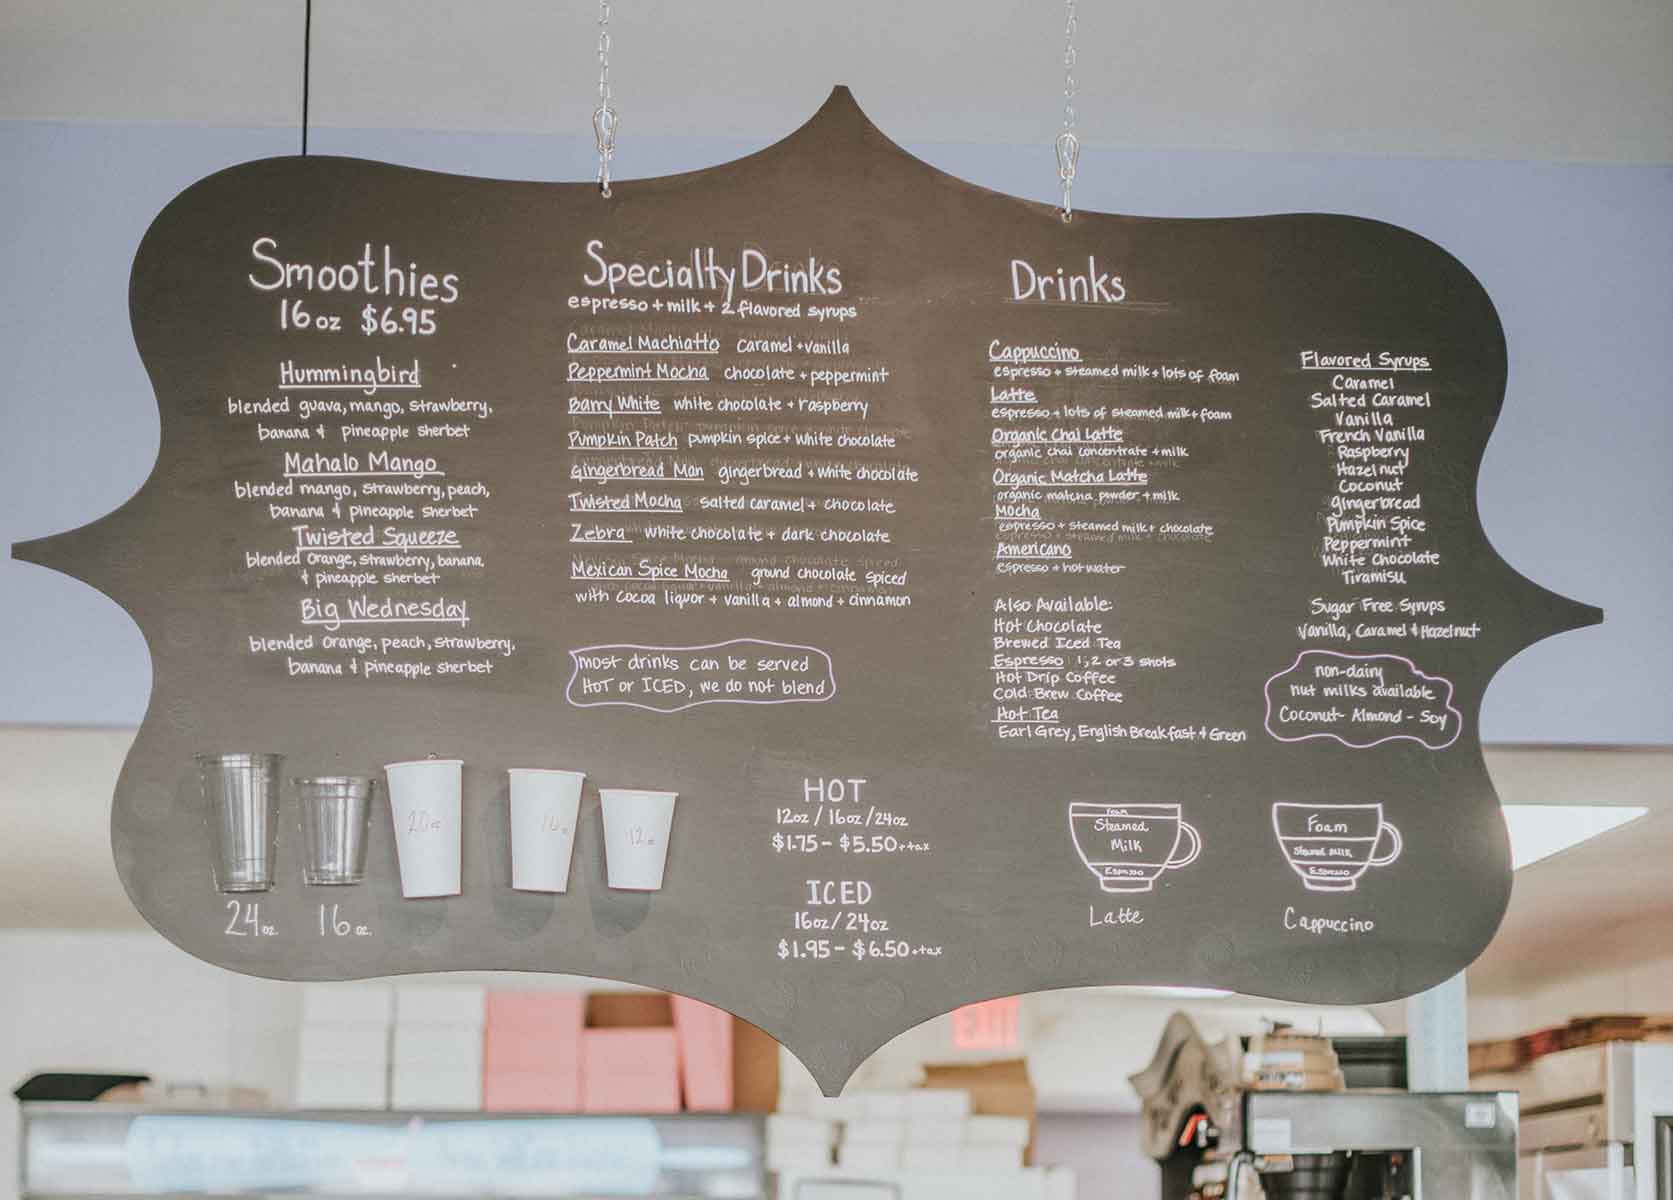 Smoothies
16 oz $6.95
Hummingbird
blended guava, mango, strawberry,
banana & pineapple sherbet
Mahalo Mango
blended mango, strawberry, peach,
banana & pineapple sherbet
Twisted Squeeze
blended orange, strawberry, banana,
& pineapple sherbet
Big Wednesday
blended orange, peach, strawberry,
banana & pineapple sherbet
Specialty Drinks
espresso + milk + 2 flavored syrups
Caramel Machiatto caramel + vanilla
Peppermint Mocha chocolate + peppermint
Barry White white chocolate + raspberry
Pumpkin Patch pumpkin spice + white chocolate
Gingerbread Man gingerbread + white chocolate
Twisted Mocha salted caramel + chocolate
Zebra white chocolate + dark chocolate
Mexican Spice Mocha ground chocolate spiced
with cocoa liquor + vanilla + almond + cinnamon
most drinks can be served
HOT or ICED, we do not blend
Drinks
Cappuccino
espresso + steamed milk + lots of foam
Latte
espresso + lots of steamed milk + foam
Organic Chai Latte
organic chai concentrate + milk
Organic Matcha Latte
organic matcha powder + milk
Mocha
espresso + steamed milk + chocolate
Americano
espresso + hot water
Also Available:
Hot Chocolate
Brewed Iced Tea
Espresso 1, 2 or 3 shots
Hot Drip Coffee
Cold Brew Coffee
Hot Tea
Earl Grey, English Breakfast & Green
Flavored Syrups
Caramel
Salted Caramel
Vanilla
French Vanilla
Raspberry
Hazelnut
Coconut
Gingerbread
Pumpkin Spice
Peppermint
White Chocolate
Tiramisu
Sugar Free Syrups
Vanilla, Caramel & Hazelnut
non-dairy
nut milks available
Coconut - Almond - Soy
24 oz.
16 oz.
20 oz
16 oz
12 oz
HOT
12oz / 16oz / 24oz
$1.75 - $5.50 + tax
ICED
16oz / 24oz
$1.95 - $6.50 + tax
Foam
Steamed
Milk
Espresso
Latte
Foam
Steamed Milk
Espresso
Cappuccino
EXIT